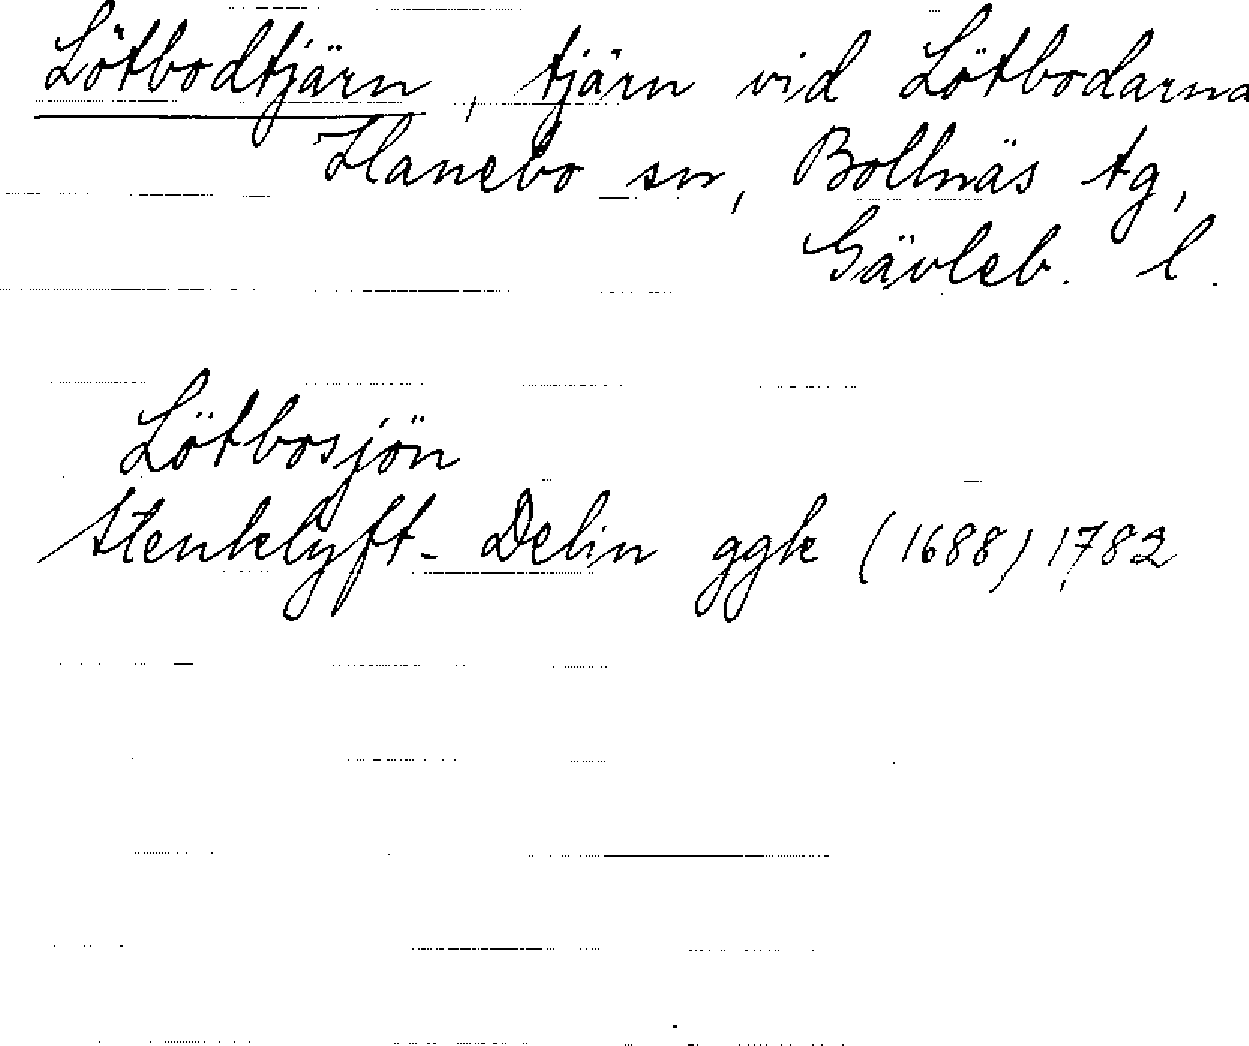 Lötbodtjärn, tjärn vid Lötbodarna
Hanebo sn, Bollnäs tg,
Gävleb. l.
Lötbosjön
Stenklyft- Delin ggk (1688) 1782